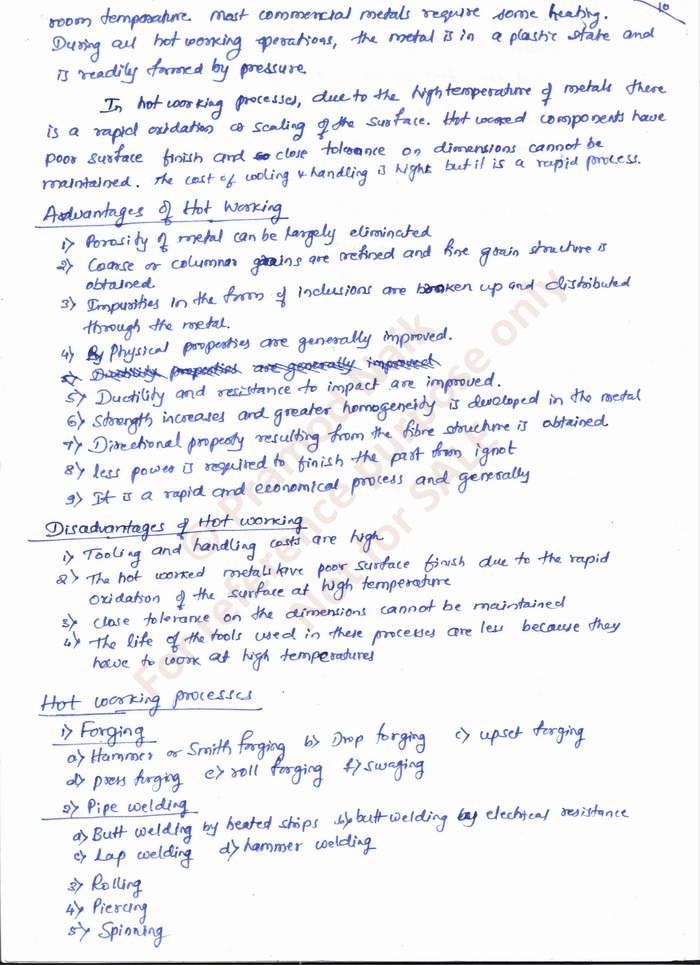 10
room temperature. most commercial metals require some heating.
During all hot working operations, the metal is in a plastic state and
is readily formed by pressure.
In hot working processes, due to the high temperature of metals there
is a rapid oxidation or scaling of the surface. Hot worked components have
poor surface finish and so close tolerance on dimensions cannot be
maintained. The cost of tooling & handling is high but it is a rapid process.
Advantages of Hot Working
1) Porosity of metal can be largely eliminated
2) Coarse or columnar grains are refined and fine grain structure is
obtained.
3) Impurities in the form of inclusions are broken up and distributed
through the metal.
4) Physical properties are generally improved.
5) Ductility properties are generally improved
5) Ductility and resistance to impact are improved.
6) Strength increases and greater homogeneity is developed in the metal
7) Directional property resulting from the fibre structure is obtained.
8) less power is required to finish the part from ignot
9) It is a rapid and economical process and generally
Disadvantages of Hot working
1) Tooling and handling costs are high
2) The hot worked metals have poor surface finish due to the rapid
oxidation of the surface at high temperature
3) close tolerance on the dimensions cannot be maintained
4) The life of the tools used in these processes are less because they
have to work at high temperatures
Hot working processes
1) Forging
a) Hammer or Smith forging b) Drop forging c) upset forging
d) press forging e) roll forging f) swaging
2) Pipe welding
a) Butt welding by heated strips b) butt welding by electrical resistance
c) Lap welding d) hammer welding
3) Rolling
4) Piercing
5) Spinning
© Pramod Naik
For reference purpose only
Not for SALE